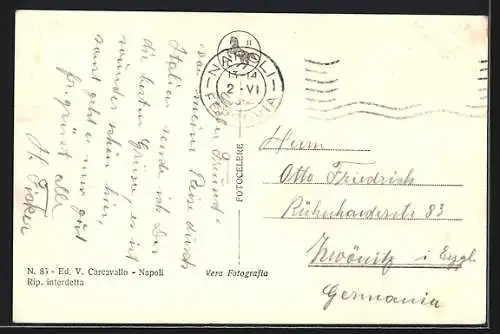 Lieber Freund!
von meine Reise durch
Italien sende ich Dir
die besten Grüße, es ist
wunderschön hier,
sonst geht es mir gut
Es grüßt alle
H. Fischer
NAPOLI
FERROVIA
13-14
2 - VI
FOTOCELERE
Herrn
Otto Friedrich
Kühnhaiderstr 83
Zwönitz i Erzgb
Germania
N. 85 - Ed. V. Carcavallo - Napoli
Rip. interdetta
Vera Fotografia